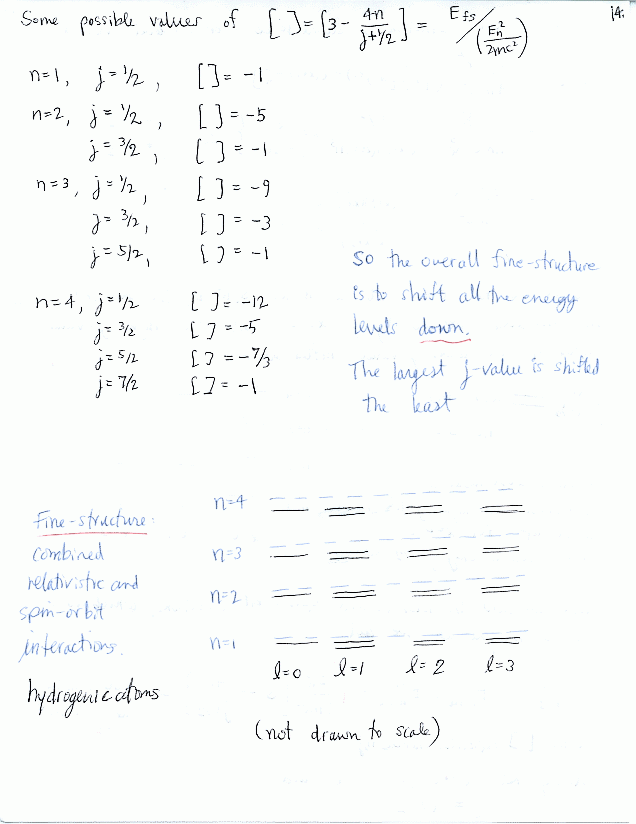 Some possible values of [ ] = [3 - 4n/(j+1/2)] = Efs/(En²/2mc²)
14.
n=1, j=1/2, [ ] = -1
n=2, j=1/2, [ ] = -5
j=3/2, [ ] = -1
n=3, j=1/2, [ ] = -9
j=3/2, [ ] = -3
j=5/2, [ ] = -1
n=4, j=1/2 [ ] = -12
j=3/2 [ ] = -5
j=5/2 [ ] = -7/3
j=7/2 [ ] = -1
So the overall fine-structure
is to shift all the energy
levels down.
The largest j-value is shifted
the least
Fine-structure:
combined
relativistic and
spin-orbit
interactions.
hydrogenic atoms
n=4
n=3
n=2
n=1
l=0 l=1 l=2 l=3
(not drawn to scale)